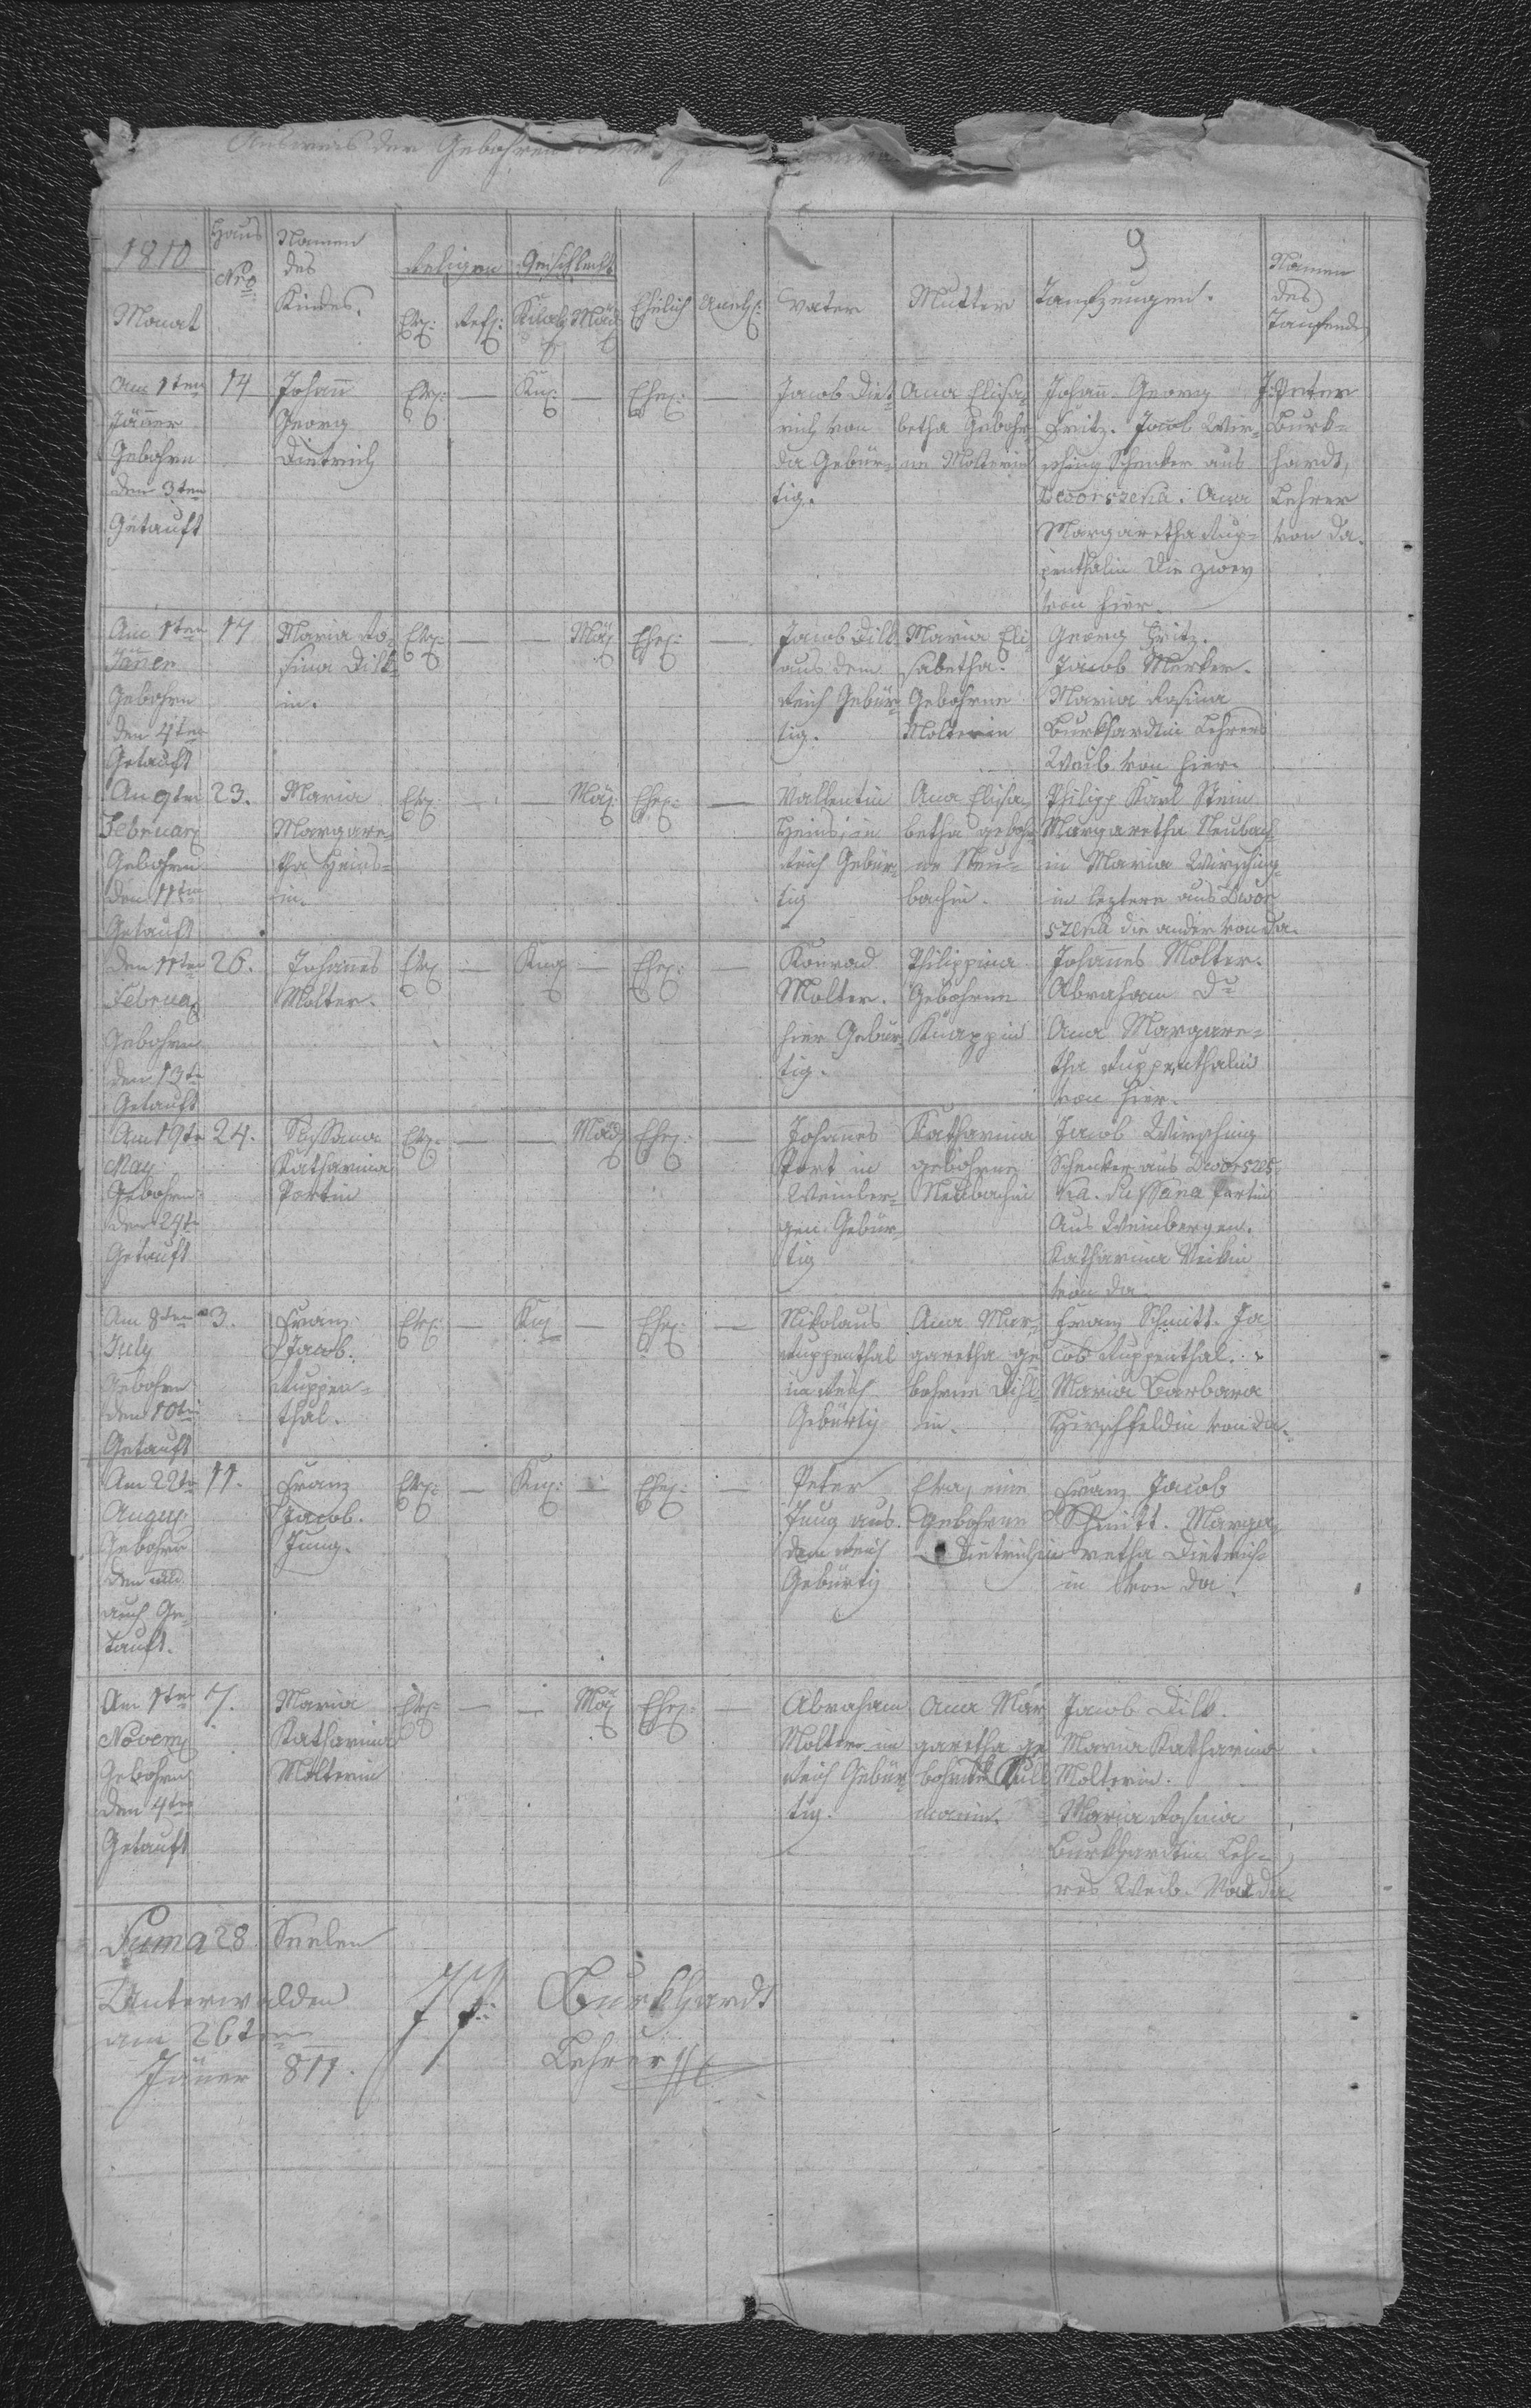 Ausweis der Gebohrnen
1810
Monat
Haus
Nro
Namen
des
Kindes.
Religion
Geschlecht
Ev:
Ref:
Knab
Mäd
Ehelich
Unehl:
Vater
Mutter
9
Taufzeugen.
Namen
des
Taufende
Am 1ten
Jäner
Gebohrn
den 3ten
Getauft
14
Johann
Georg
Dietrich
Ev:
—
Kn:
—
Ehe:
—
Jacob Diet-
rich von
da Gebür-
tig.
Ana Elisa-
betha Gebohr-
ne Molterin
Johann Georg
Fritz. Jacob Wir-
sching Schenker aus
Dworszeka. Ana
Margaretha Rup-
penthalin die zwey
von hier.
J: Peter
Burk-
hardt,
Lehrer
von da.
Am 1ten
Jäner
Gebohrn
den 4ten
Getauft
17
Maria Ro-
sina Dilk-
in.
Ev:
—
—
Mäd
Ehe:
—
Jacob Dilk
aus dem
Reich Gebür-
tig.
Maria Eli-
sabetha.
Gebohrne
Molterin
Georg Fritz.
Jacob Merker.
Maria Rosina
Burkhardtin Lehrers
Weib von hier.
Am 9ten
Februar
Gebohren
den 11ten
Getauft
23.
Maria
Margare-
tha Heins-
in.
Ev:
—
—
Mäd
Ehe:
—
Vallentin
Heins, im
Reich Gebür-
tig
Ana Elisa-
betha gebohr-
ne Neu-
bachin.
Philipp Karl Stein
Margaretha Neubach-
in Maria Wirsching-
in leztere aus Dwor
szeka die ander von da.
Den 11ten
Februar
Gebohren
den 13te
Getauft
26.
Johannes
Molter.
Ev
—
Kna
—
Ehe:
—
Konrad
Molter.
hier Gebür-
tig.
Philippina
Gebohrne
Knappin
Johannes Molter.
Abraham Do
Ana Margare-
tha Ruppenthalin
von hier.
Am 19te
May
Gebohren
den 24te
Getauft
24.
Sussana
Katharina
Portin
Ev:
—
—
Mäd
Ehe:
—
Johannes
Port in
Weinber-
gen Gebür-
tig
Katharina
gebohrne
Neubachin
Jacob Wirsching
Schenker aus Dworsze-
ka. Sussana Portin
aus Weinbergen.
Katharina
von da
Am 8ten
July
Gebohrn
den 10te
Getauft
3.
Franz
Jacob.
Ruppen-
thal.
Ev:
—
Kn
—
Ehe:
—
Nikolaus
Ruppenthal
im Reich
Gebürtig
Ana Mar-
garetha ge
bohrne Dilk-
in.
Franz Schmitt. Ja
cob Ruppenthal.
Maria Barbara
Hirschfeldin von da.
Am 22te
Augus
Gebohrn
den
auch Ge-
tauft.
11.
Franz
Jacob.
Jung.
Ev:
—
Kn:
—
Ehe:
—
Peter
Jung aus
dem Reich
Gebürtig
Eva, eine
Gebohrne
Dietrichin
Franz Jacob
Schmitt. Marga-
retha Dietrich-
in von da.
Am 1ten
Novem
Gebohrn
den 4ten
Getauft
7.
Maria
Katharina
Molterin
Ev:
—
—
Mä
Ehe:
—
Abraham
Molter im
Reich Gebür-
tig.
Ana Mar
garetha ge
bohrne Kull
manin.
Jacob Dilk.
Maria Katharina
Molterin.
Maria Rosina
Burkhardtin Leh-
rers Weib. Von da
Suma 28 Seelen
Unterwalden
am 26ten
Jäner 811.
J P: Burkhardt
Lehrer